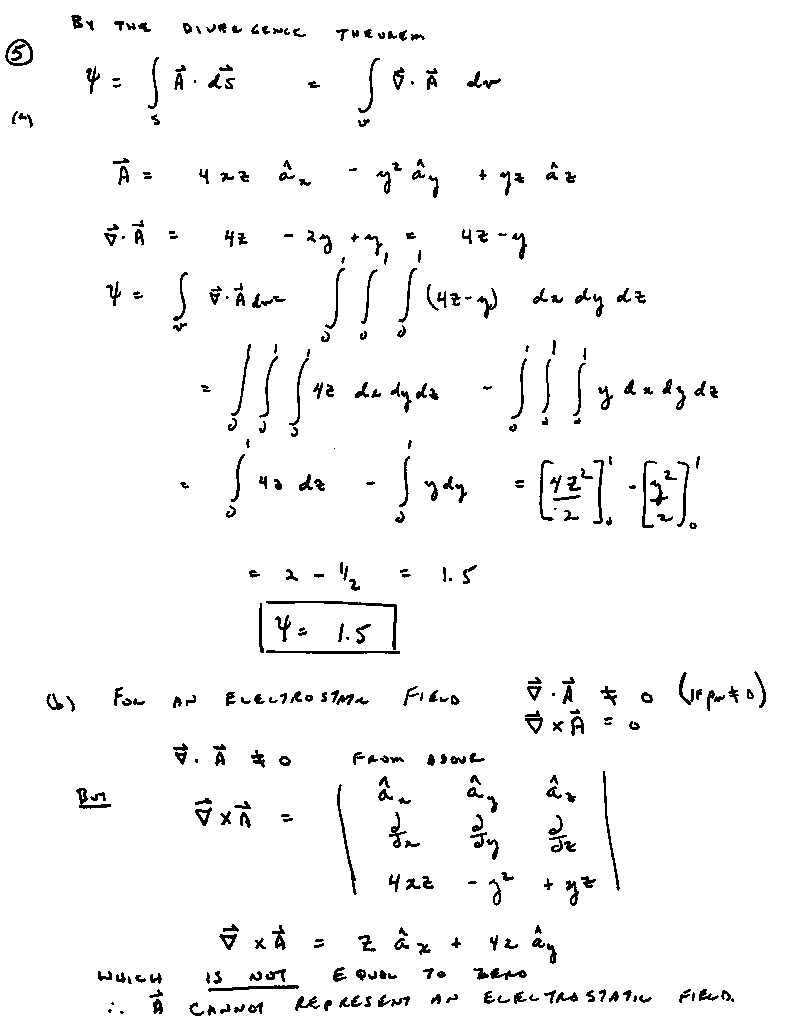 BY THE DIVERGENCE THEOREM
(5) Ψ = ∫_S A⃗ · dS⃗ = ∫_v ∇⃗ · A⃗ dv
(a)
A⃗ = 4xz â_x - y² â_y + yz â_z
∇⃗ · A⃗ = 4z - 2y + y = 4z - y
Ψ = ∫_v ∇⃗ · A⃗ dv = ∫_0^1 ∫_0^1 ∫_0^1 (4z - y) dx dy dz
= ∫_0^1 ∫_0^1 ∫_0^1 4z dx dy dz - ∫_0^1 ∫_0^1 ∫_0^1 y dx dy dz
= ∫_0^1 4z dz - ∫_0^1 y dy = [4z²/2]_0^1 - [y²/2]_0^1
= 2 - 1/2 = 1.5
Ψ = 1.5
(b) FOR AN ELECTROSTATIC FIELD ∇⃗ · A⃗ ≠ 0 (IF ρ_v ≠ 0)
∇⃗ × A⃗ = 0
∇⃗ · A⃗ ≠ 0 FROM ABOVE
BUT ∇⃗ × A⃗ = | â_x â_y â_z
∂/∂x ∂/∂y ∂/∂z
4xz - y² + yz |
∇⃗ × A⃗ = z â_x + 4x â_y
WHICH IS NOT EQUAL TO ZERO
∴ A⃗ CANNOT REPRESENT AN ELECTROSTATIC FIELD.